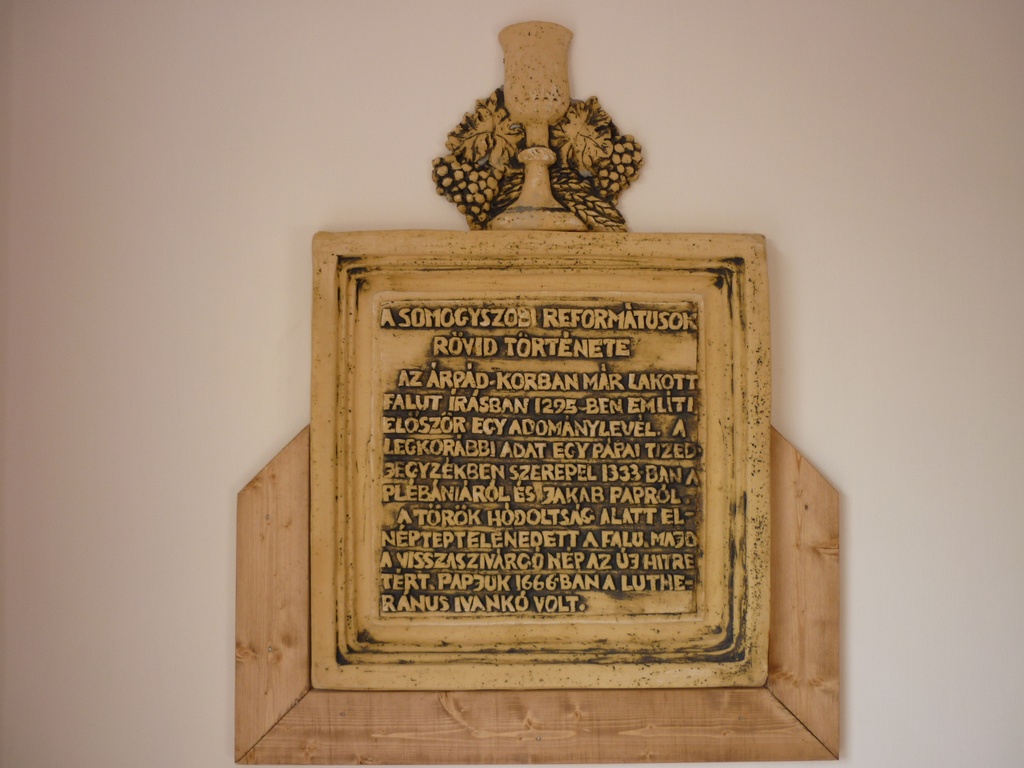 A SOMOGYSZOBI REFORMÁTUSOK
RÖVID TÖRTÉNETE
AZ ÁRPÁD-KORBAN MÁR LAKOTT
FALUT ÍRÁSBAN 1295-BEN EMLÍTI
ELŐSZÖR EGY ADOMÁNYLEVÉL. A
LEGKORÁBBI ADAT EGY PÁPAI TIZED
JEGYZÉKBEN SZEREPEL 1333-BAN A
PLÉBÁNIÁRÓL ÉS JAKAB PAPRÓL.
A TÖRÖK HÓDOLTSÁG ALATT EL-
NÉPTEPTELENEDETT A FALU, MAJD
A VISSZASZIVÁRGÓ NÉP AZ ÚJ HITRE
TÉRT. PAPJUK 1666-BAN A LUTHE-
RÁNUS IVANKÓ VOLT.